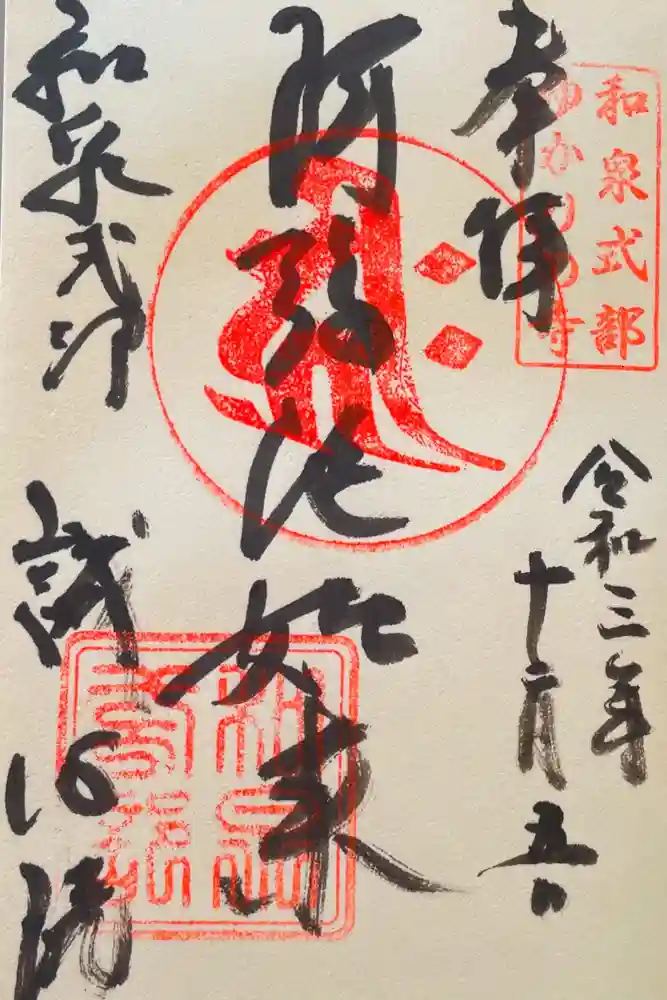 和泉式部
ゆかりの寺
奉拝
令和三年
十二月五日
阿弥陀如来
和泉式部 誠心院